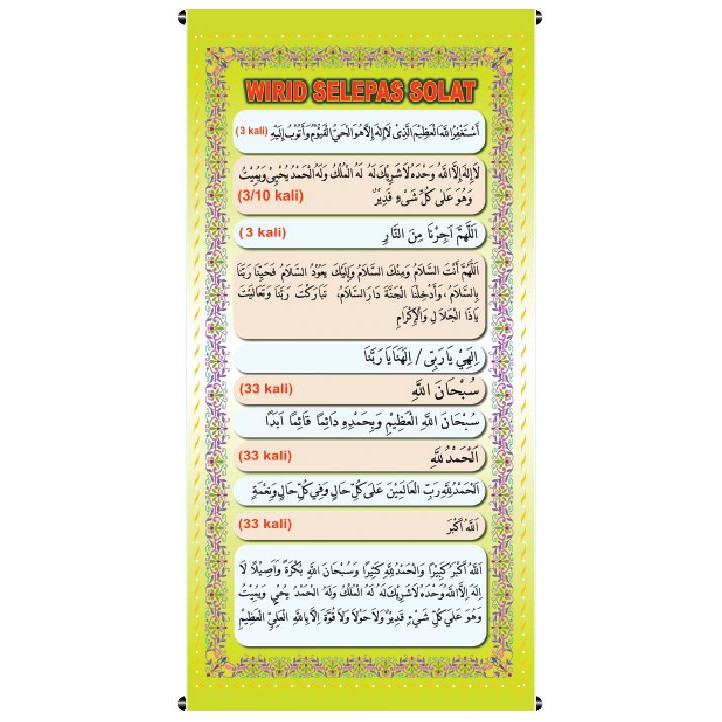 WIRID SELEPAS SOLAT
أَسْتَغْفِرُ اللهَ الْعَظِيْمَ الَّذِيْ لَا إِلَهَ إِلَّا هُوَ الْحَيُّ الْقَيُّوْمُ وَأَتُوْبُ إِلَيْهِ (3 kali)
لَا إِلَهَ إِلَّا اللهُ وَحْدَهُ لَا شَرِيْكَ لَهُ لَهُ الْمُلْكُ وَلَهُ الْحَمْدُ يُحْيِيْ وَيُمِيْتُ
وَهُوَ عَلَى كُلِّ شَيْءٍ قَدِيْرٌ (3/10 kali)
اَللَّهُمَّ أَجِرْنَا مِنَ النَّارِ (3 kali)
اَللَّهُمَّ أَنْتَ السَّلَامُ وَمِنْكَ السَّلَامُ وَإِلَيْكَ يَعُوْدُ السَّلَامُ فَحَيِّنَا رَبَّنَا
بِالسَّلَامِ، وَأَدْخِلْنَا الْجَنَّةَ دَارَ السَّلَامُ، تَبَارَكْتَ رَبَّنَا وَتَعَالَيْتَ
يَاذَا الْجَلَالِ وَالْإِكْرَامِ
إِلَهِيْ يَا رَبِّيْ / إِلَهَنَا يَا رَبَّنَا
سُبْحَانَ اللَّهِ (33 kali)
سُبْحَانَ اللَّهِ الْعَظِيْمِ وَبِحَمْدِهِ دَائِمًا قَائِمًا أَبَدًا
اَلْحَمْدُ لِلَّهِ (33 kali)
اَلْحَمْدُ لِلَّهِ رَبِّ الْعَالَمِيْنَ عَلَى كُلِّ حَالٍ وَفِيْ كُلِّ حَالٍ وَنِعْمَةٍ
اَللَّهُ أَكْبَرُ (33 kali)
اَللَّهُ أَكْبَرُ كَبِيْرًا وَالْحَمْدُ لِلَّهِ كَثِيْرًا وَسُبْحَانَ اللَّهِ بُكْرَةً وَأَصِيْلًا لَا
إِلَهَ إِلَّا اللَّهُ وَحْدَهُ لَا شَرِيْكَ لَهُ لَهُ الْمُلْكُ وَلَهُ الْحَمْدُ يُحْيِيْ وَيُمِيْتُ
وَهُوَ عَلَى كُلِّ شَيْءٍ قَدِيْرٌ وَلَا حَوْلَ وَلَا قُوَّةَ إِلَّا بِاللَّهِ الْعَلِيِّ الْعَظِيْمِ